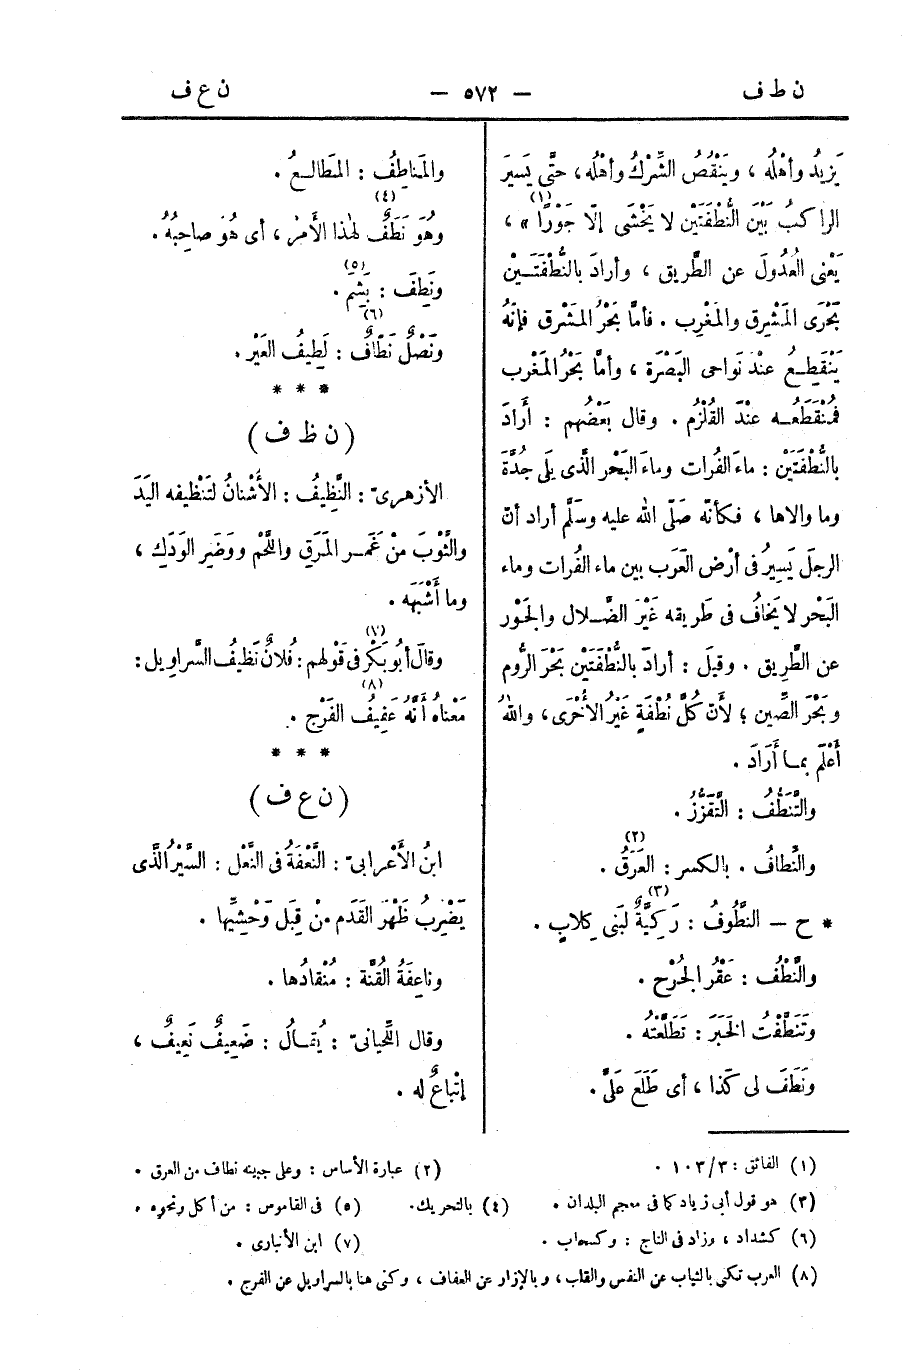 ن ط ف — ٥٧٢ — ن ع ف
يَزِيدُ وأهْلُه ، ويَنْقُصُ الشِّرْكُ وأهْلُه، حتَّى يَسيرَ
الراكبُ بَيْنَ النُّطْفَتَيْن لا يَخْشَى إلّا جَوْرًا (١) » ،
يَعْنى العُدُولَ عن الطَّريق ، وأرادَ بالنُّطْفَتَـيْن
بَحْرَى المَشْرِق والمَغْرِب . فأمَّا بَحْرُ المَشْرق فإنّهُ
يَنْقَطِـعُ عنْدَ نَواحى البَصْرَة ، وأمَّا بَحْرُ المَغْرب
فمُنْقَطَعُـه عنْدَ القُلْزُم . وقال بَعْضُهم : أَرادَ
بالنُّطْفَتَيْن : ماءَ الفُرات وماءَ البَحْر الَّذى يَلى جُدَّةَ
وما والاها ، فكأنّه صَلّى الله عليه وسَلَّم أراد أنّ
الرجلَ يَسِيرُ فى أرْض العَرَب بين ماء الفُرات وماء
البَحْر لا يَخافُ فى طَريقه غَيْرَ الضَّـلال والجَوْر
عن الطَّرِيق . وقيلَ : أرادَ بالنُّطْفَتَيْن بَحْرَ الرُّوم
وبَحْرَ الصِّين ؛ لأنّ كُلَّ نُطْفَةٍ غَيْرُ الأُخْرَى، واللهُ
أَعْلَم بمـا أَرَادَ .
والتَّنَطُّفُ : التَّقَزُّزُ .
والنِّطافُ . بالكسر : العَرَقُ (٢) .
* ح — النَّطُوفُ : رَكِيَّةٌ (٣) لبَنى كِلابٍ .
والنَّطْفُ : عَقْرُ الجُرْح .
وتَنَطَّفْتُ الخَبَرَ : تَطَلَّعْتُه .
ونَطَفَ لى كَذا ، أى طَلَعَ عَلَىَّ .
والمَناطِفُ : المَطَالـعُ .
وهُوَ نَطَفٌ (٤) لهٰذا الأَمْر ، أى هُوَ صاحِبُهُ .
ونَطِفَ : بَشِمَ (٥) .
ونَصْلٌ نَطّافٌ (٦) : لَطِيفُ العَيْر .
* * *
( ن ظ ف )
الأزهرىّ : النَّظِيفُ : الأُشْنانُ لتَنْظيفه اليَدَ
والثَّوْبَ منْ غَمَـر المَرَقِ واللَّحْم ووَضَرِ الوَدَكِ ،
وما أَشْبَهَه .
وقالَ أبُو بَكْر (٧) فى قَوْلهم : فُلانٌ نَظيفُ السَّراويل :
مَعْناه أَنَّهُ عَفِيفُ (٨) الفَرْج .
* * *
( ن ع ف )
ابنُ الأَعْرابىّ : النَّعْفَةُ فى النَّعْل : السَّيْرُ الَّذى
يَضْرِبُ ظَهْرَ القَدَم منْ قِبَل وَحْشِيِّها .
وناعِفَةُ القُنَّة : مُنْقادُها .
وقال اللِّحْيانىّ : يُقـالُ : ضَعِيفٌ نَعِيفٌ ،
إتْباعٌ له .
(١) الفائق : ٣/ ١٠٣ . (٢) عبارة الأساس : وعلى جبينه نطاف من العرق .
(٣) هو قول أبى زياد كما فى معجم البلدان . (٤) بالتحريك. (٥) فى القاموس : من أكل ونحوه .
(٦) كشداد ، وزاد فى التاج : وكسحاب . (٧) ابن الأنبارى .
(٨) العرب تكنى بالثياب عن النفس والقلب ، وبالإزار عن العفاف ، وكنى هنا بالسراويل عن الفرج .